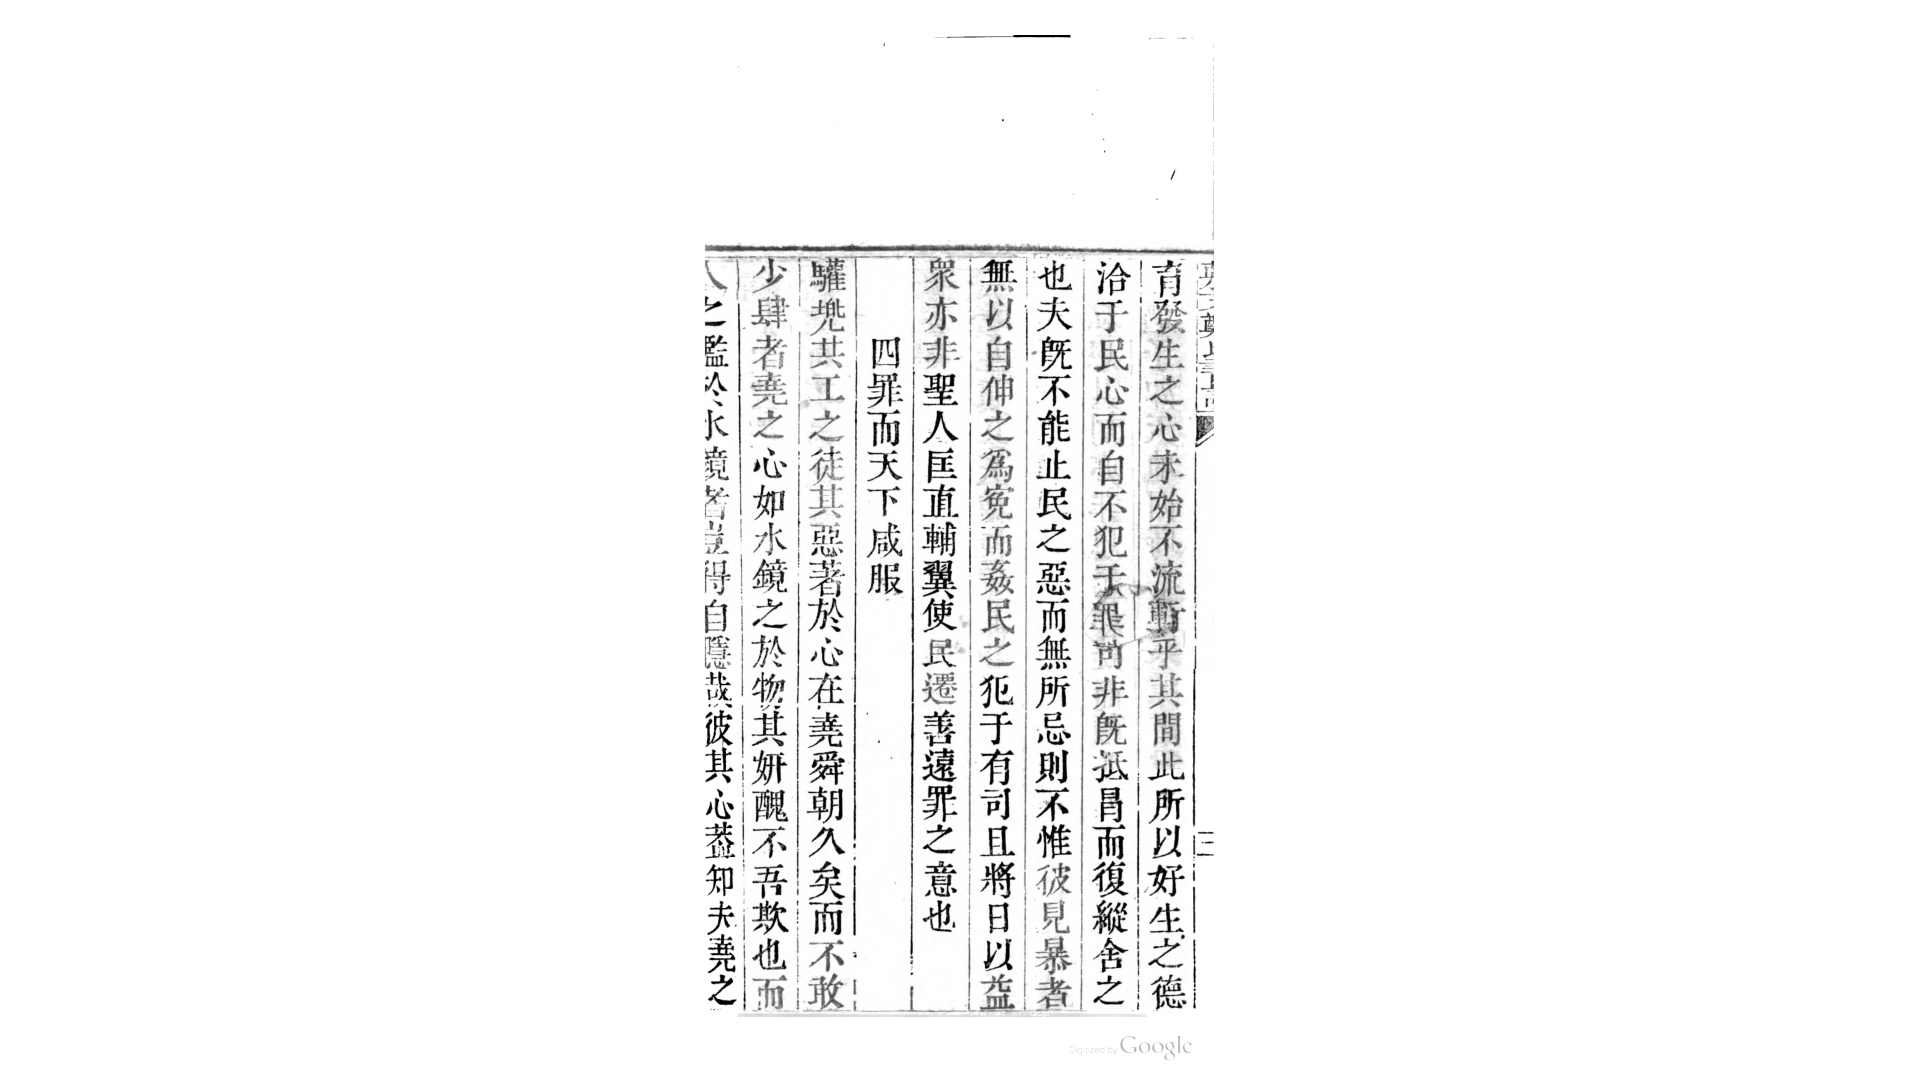 育發生之心未始不流暫乎其間此所以好生之德
洽于民心而自不犯于罪苟非旣抵冒而復縱舍之
也夫旣不能止民之惡而無所忌則不惟彼見暴者
無以自伸之爲寃而姦民之犯于有司且將日以益
衆亦非聖人匡直輔翼使民遷善遠罪之意也
四罪而天下咸服
驩兠共工之徒其惡著於心在堯舜朝久矣而不敢
少肆者堯之心如水鏡之於物其妍醜不吾欺也而
人之監於水鏡者豈得自隱哉彼其心葢知夫堯之
Digitized by Google